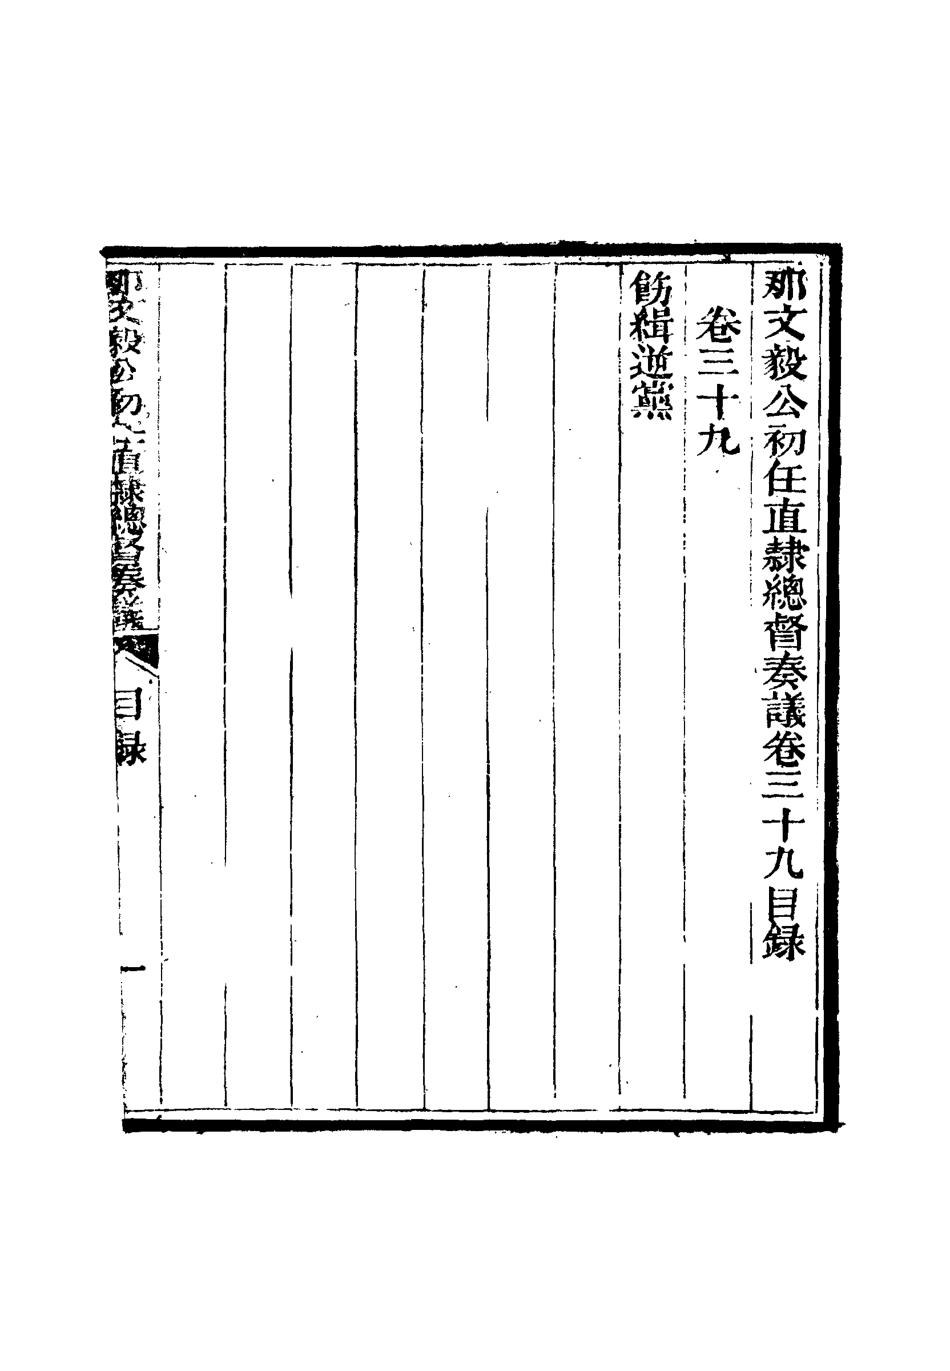 那文毅公初任直隸總督奏議卷三十九目録
卷三十九
飭緝逆黨
那文毅公初任直隸總督奏議
目録
一